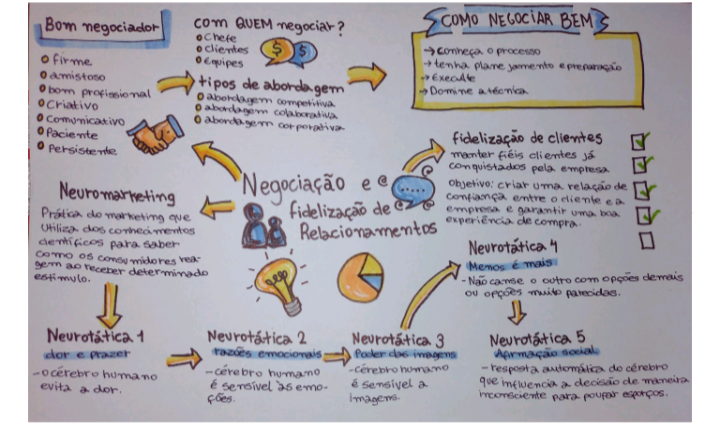 Bom negociador
firme
amistoso
bom profissional
Criativo
Comunicativo
Paciente
Persistente
com QUEM negociar?
Chefe
clientes
Equipes
tipos de abordagem
abordagem competitiva
abordagem colaborativa
abordagem corporativa
COMO NEGOCIAR BEM
→ conheça o processo
→ tenha planejamento e preparação
→ Execute
→ Domine a técnica
fidelização de clientes
manter fiéis clientes já
conquistados pela empresa
objetivo: criar uma relação de
confiança entre o cliente e a
empresa e garantir uma boa
experiência de compra.
Negociação e
fidelização de
Relacionamentos
Neuromarketing
Prática do marketing que
Utiliza dos conhecimentos
científicos para saber
como os consumidores rea-
gem ao receber determinado
estímulo.
Neurotática 1
dor e prazer
- o cérebro humano
evita a dor.
Neurotática 2
razões emocionais
- cérebro humano
é sensível às emo-
ções.
Neurotática 3
Poder das imagens
- Cérebro humano
é sensível a
imagens.
Neurotática 4
Menos é mais
- Não canse o outro com opções demais
ou opções muito parecidas.
Neurotática 5
Afirmação social
- resposta automática do cérebro
que influencia a decisão de maneira
inconsciente para poupar esforços.